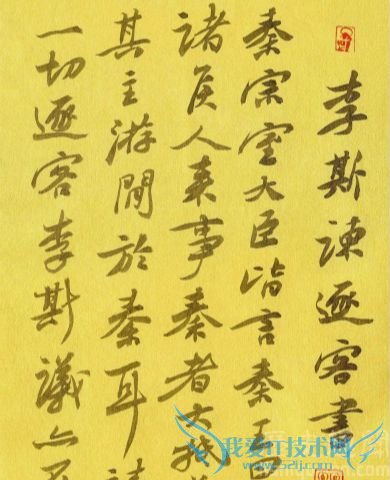 李斯諫逐客書
秦宗室大臣皆言秦王
諸侯人来事秦者大抵
其主游間於秦耳
一切逐客李斯議亦在
我爱IT技术网